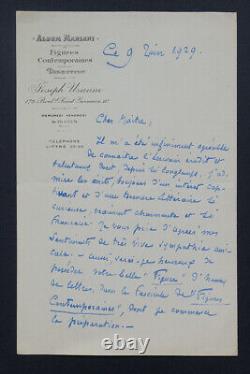 Album Mariani
Figures
Contemporaines
Direction
Joseph Uzanne
172, Boul.d Saint Germain
MERCREDI VENDREDI
TÉLÉPHONE
Ce 9 Juin 1929.
Cher Maître,
Il m'a été infiniment agréable
de connaître l'écrivain érudit et
talentueux dont, depuis si longtemps, j'ad
mire les écrits, toujours d'un intérêt cap
tivant et d'une tenue littéraire si
curieuse, vraiment charmante et si
Française. Je vous prie d'agréer mes
sentiments de très vive sympathie ami
cale. Aussi, serai-je heureux de
posséder votre belle "Figure" d'homme
de lettres, dans le Fascicule des "Figures
Contemporaines", dont je commence
la préparation.
© www.picclick.com